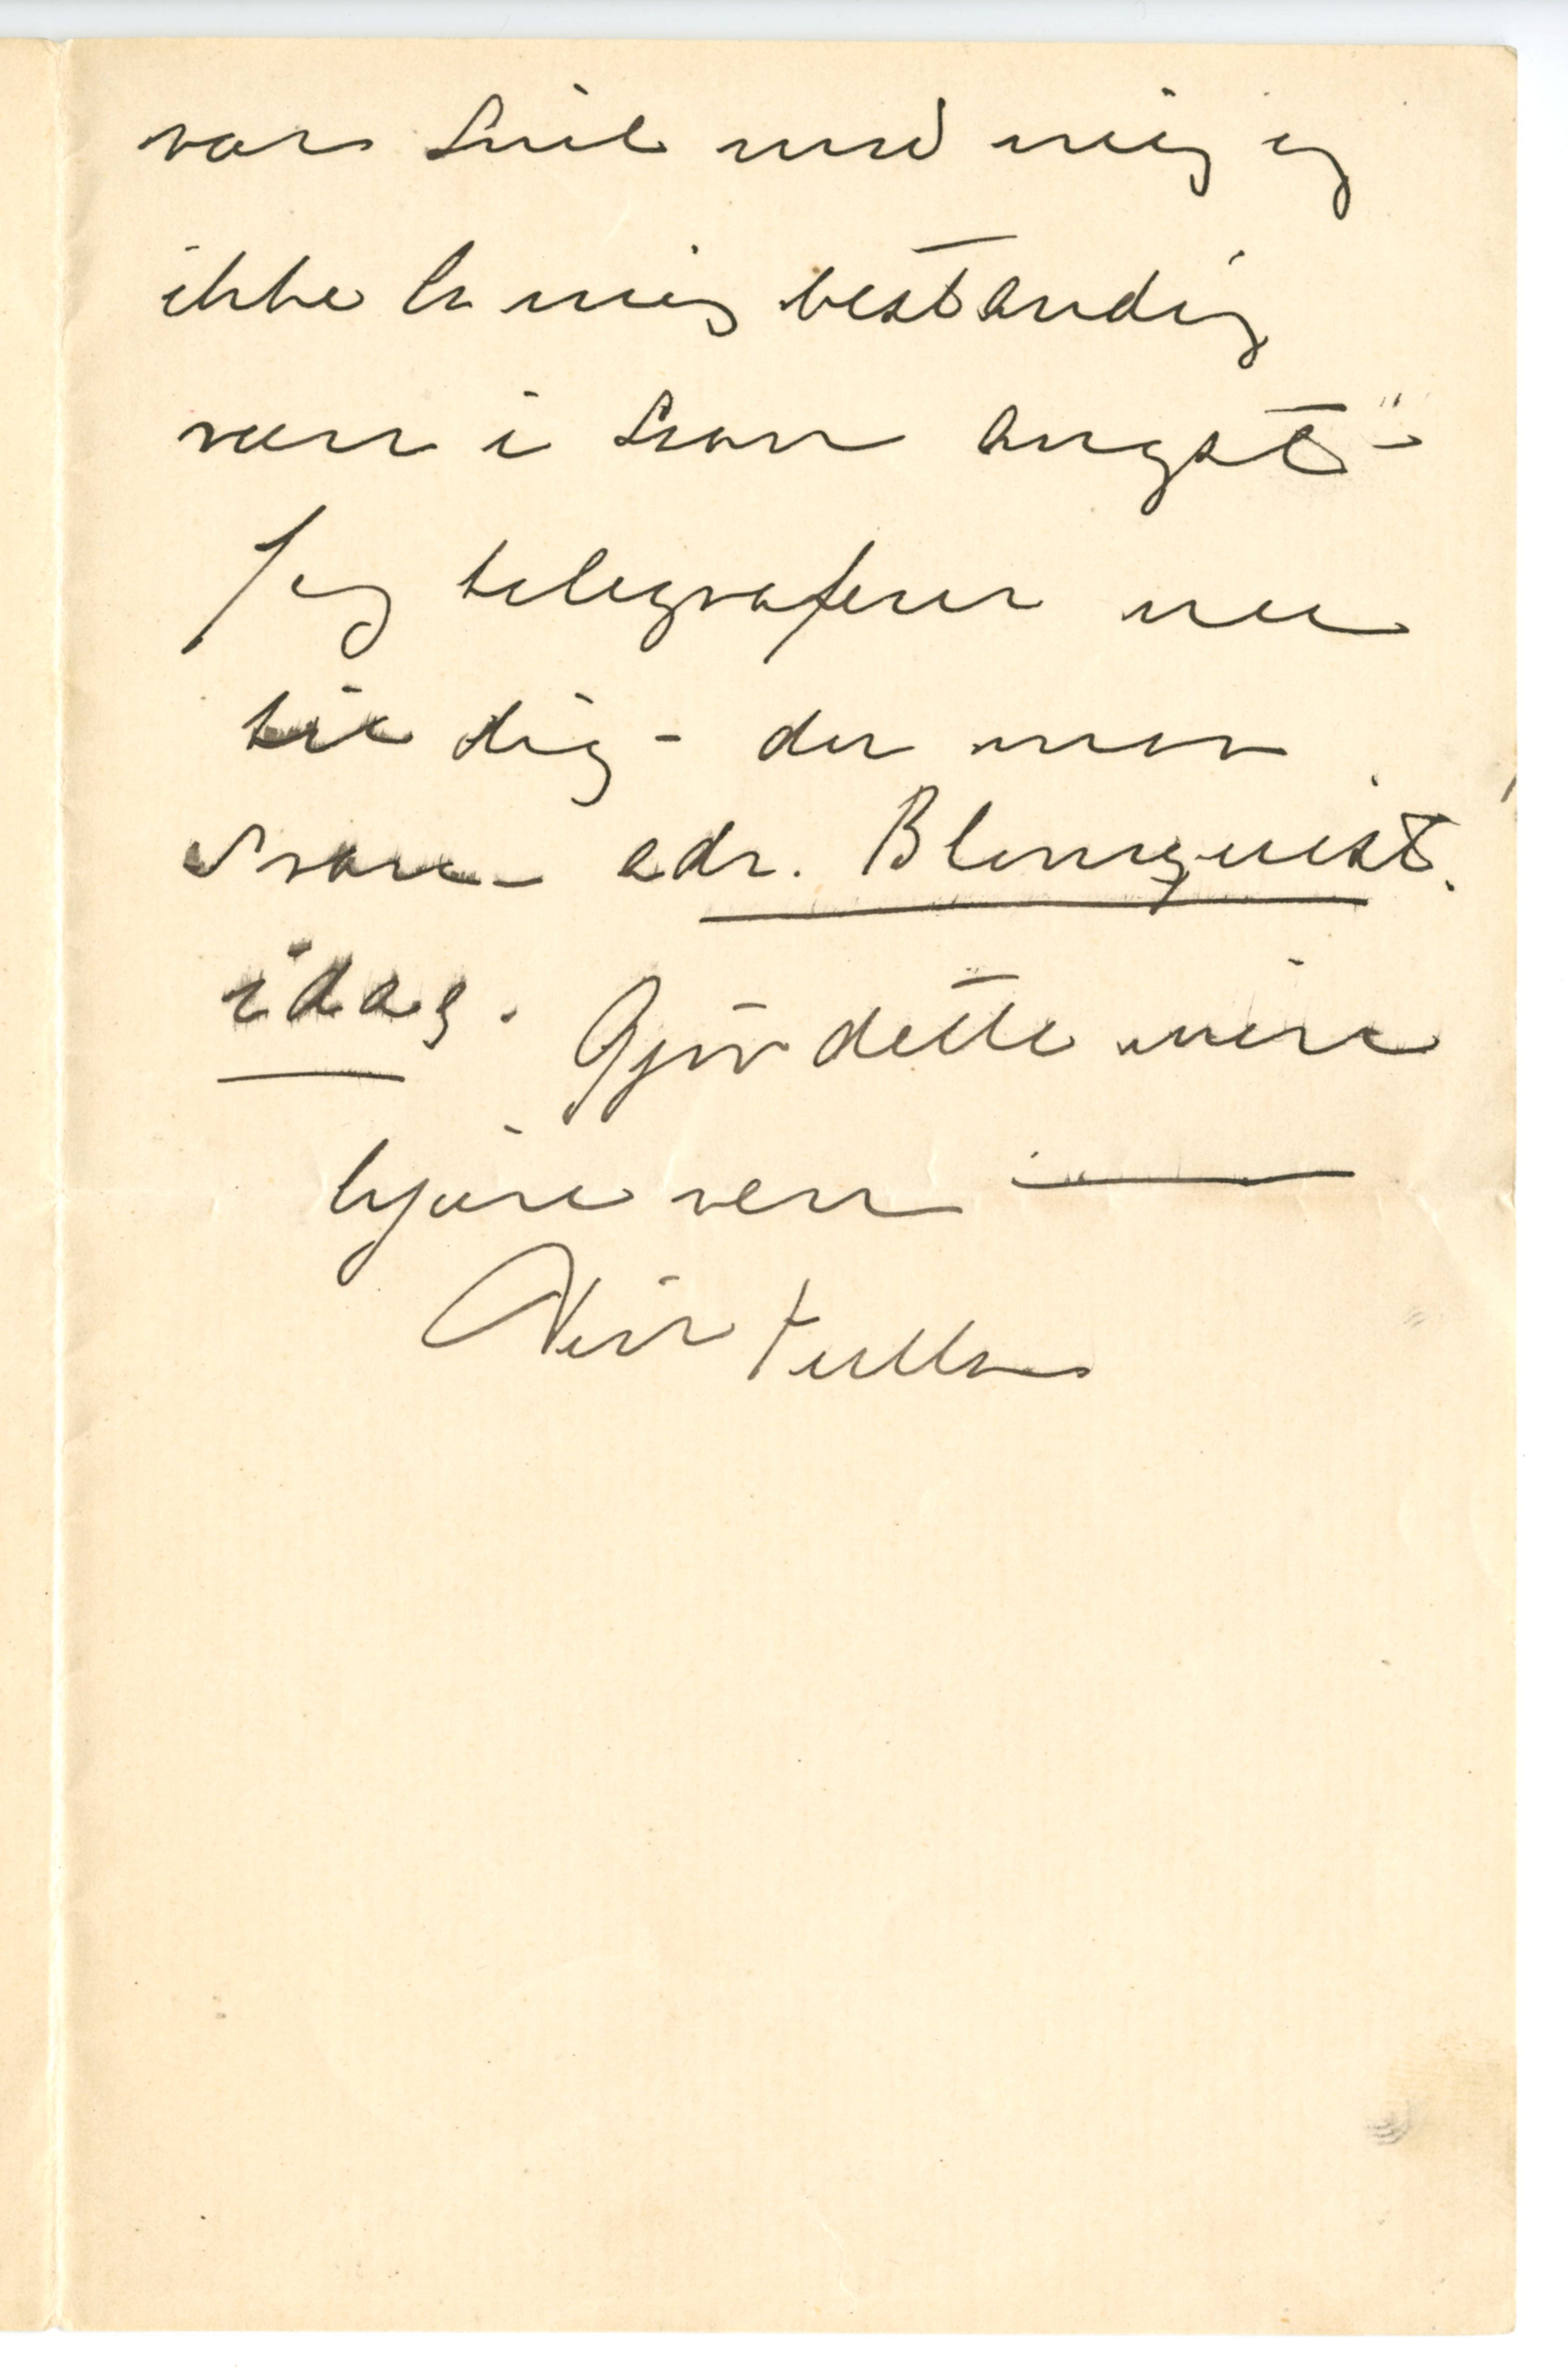 vær snil med mig og
ikke la mig bestandig
være i saan angst –
Jeg telegraferer nu
til dig – du maa
svare – adr. Blomquist.
idag. Gjør dette mine
kjære ven —
Din Tulla